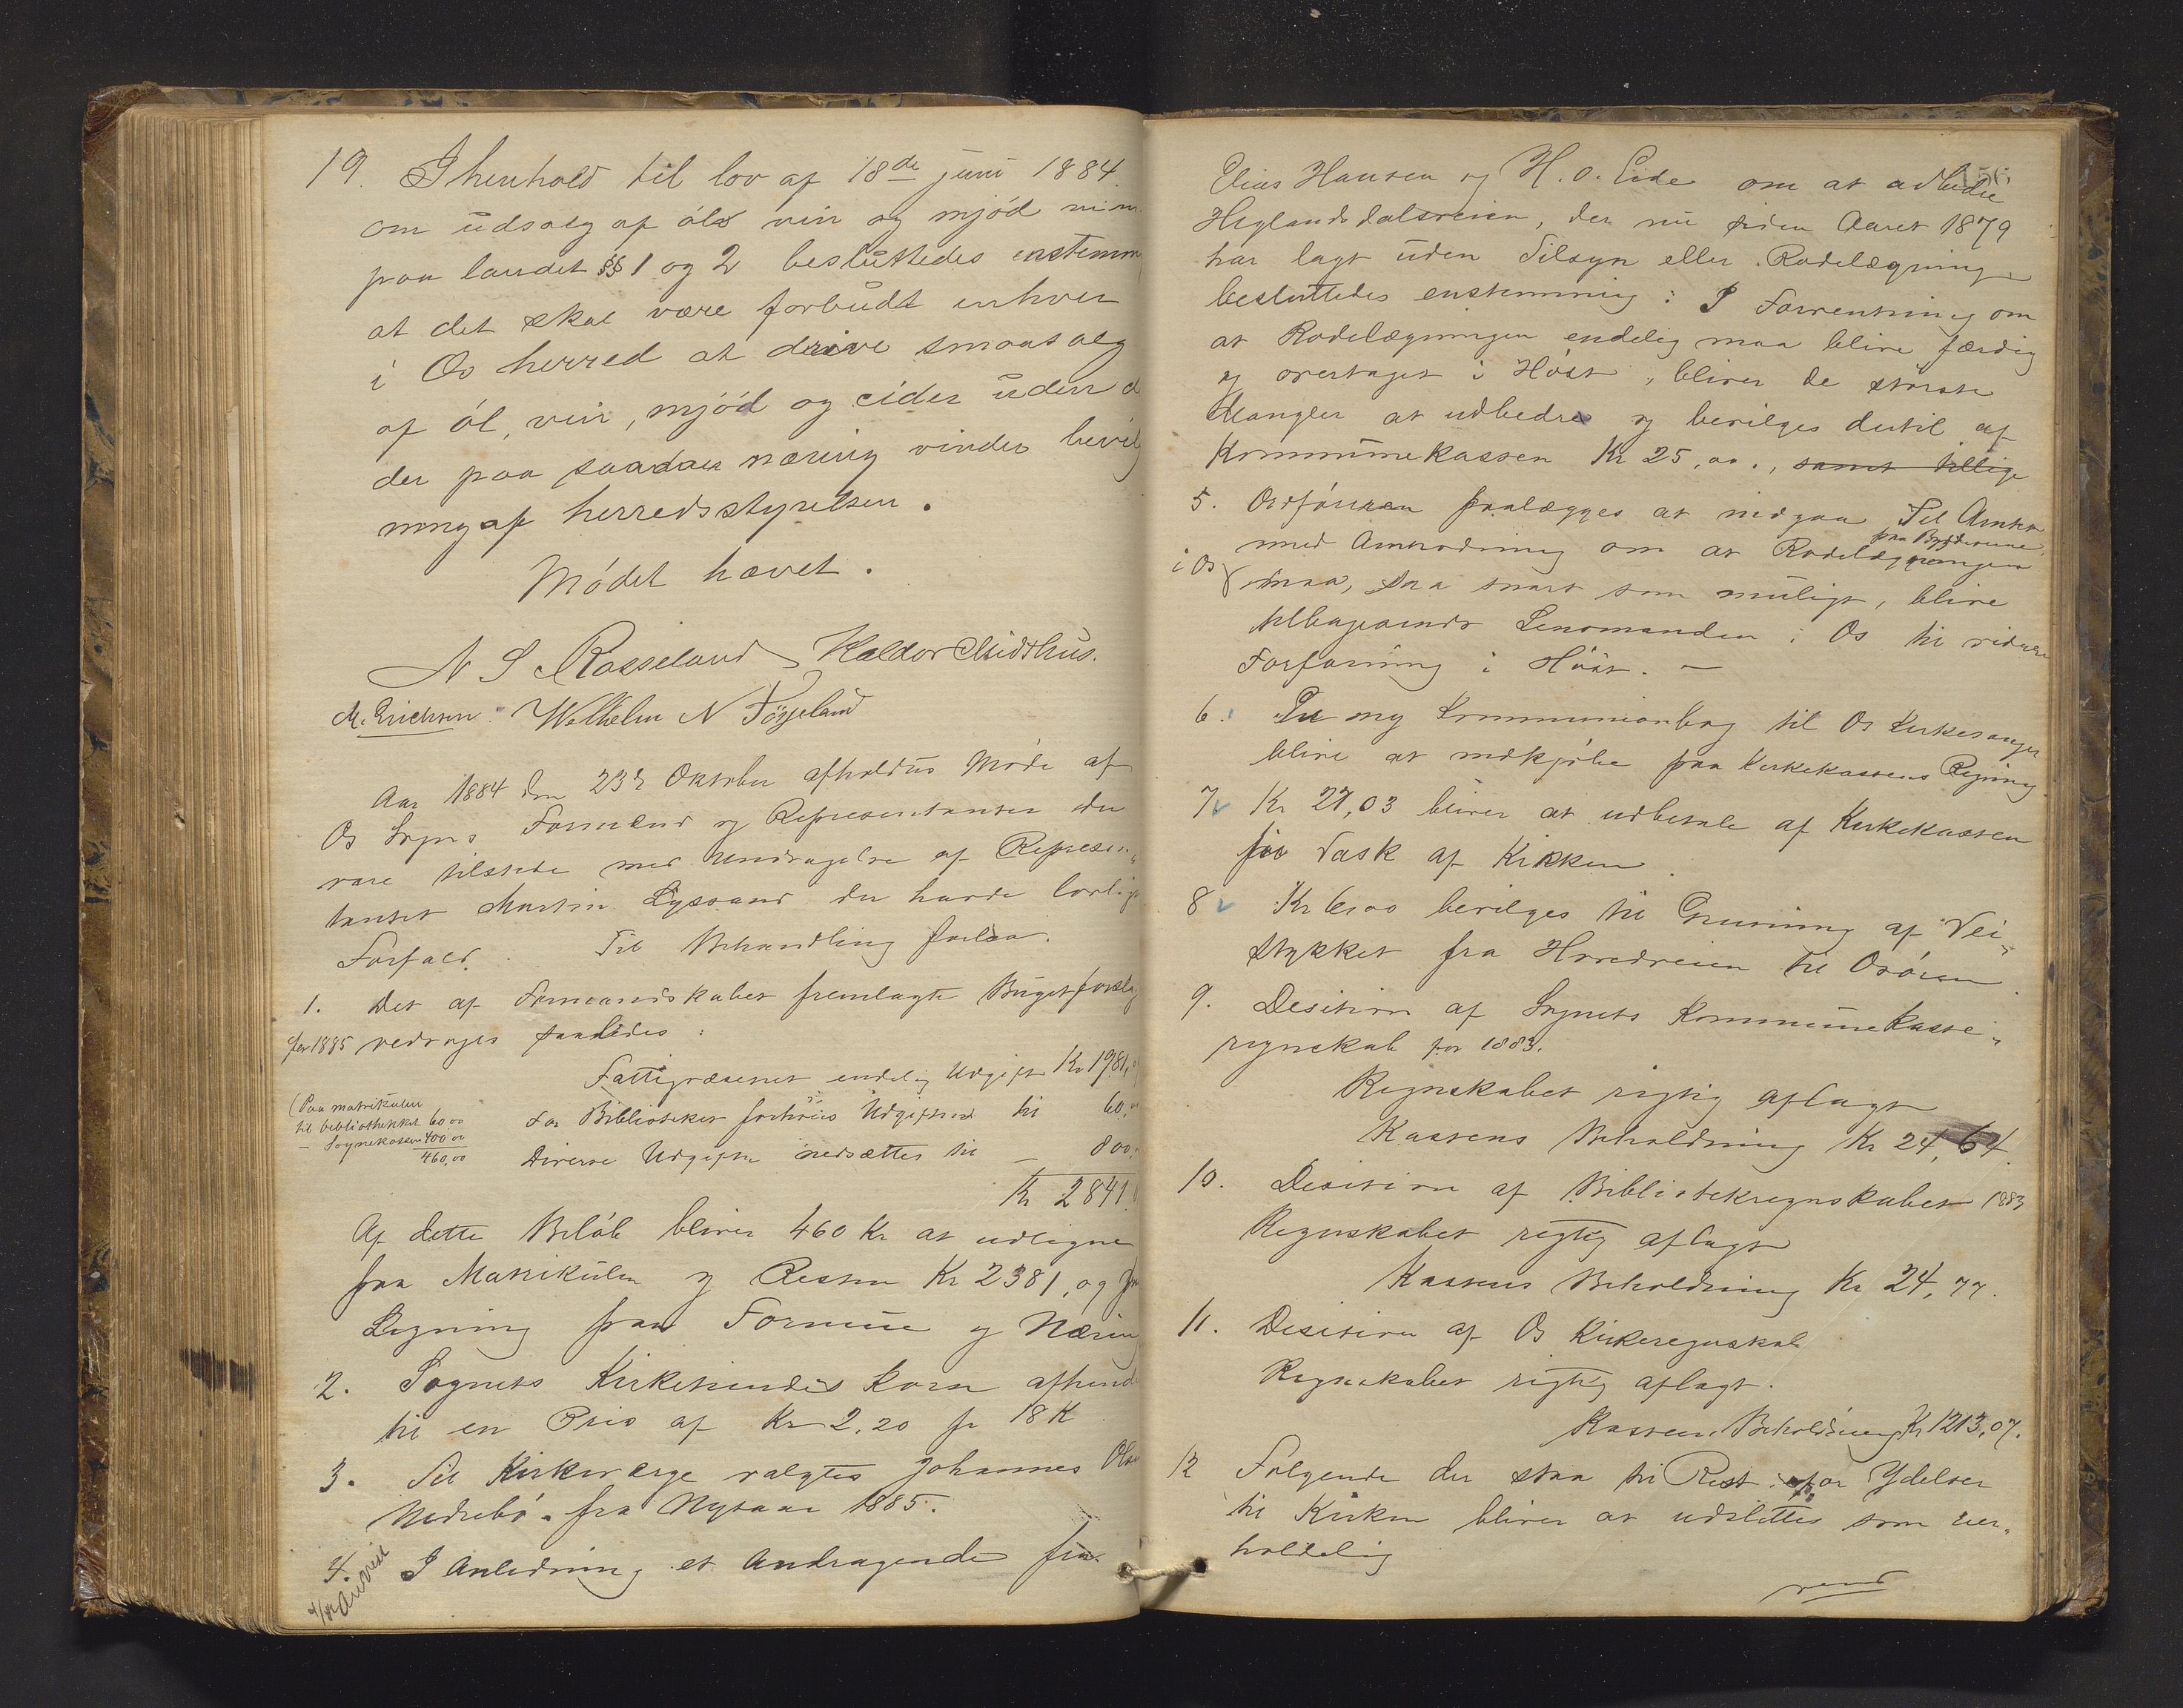 19. I henhold til lov af 18de juni 1884
om udsalg af öl vin og mjöd m.m.
paa landet §§ 1 og 2 besluttedes enstemm
at det skal være forbudt enhver
i Os herred at drive smaasalg
af öl, vin, mjöd og cider uden d
der paa saadan næring vinder bevilg
ning af herredsstyrelsen.
Mödet hævet.
N S Røsseland Haldor Midthus.
M. Erichsen Wilhelm N Tösseland
Aar 1884 den 23de Oktober afholdtes Möde af
Os Sogns Formænd og Representanter der
vare tilstede med Undtagelse af Represen„
tanten Martin Lyssand der havde lovligt
Forfald. Til Behandling forelaa.
1. Det af Formandskabet fremlagte Bugetforslag
for 1885 vedtoges saaledes:
Fattigvæsenet endelig Udgift Kr 1981,
(Paa matrikulen
til bibliothekket 60.00
– Sognekassen 400 00
460,00
For Biblioteket forhöies Udgiften til 60,
Diverse Udgifter nedsættes til – 800,
Kr 2841.
Af dette Belöb bliver 460 Kr at udligne
paa Matrikulen og Resten Kr 2381, og
Ligning paa Formue og Næring
2. Sognets Kirketiendes Korn afhend
til en Pris af Kr 2,20 pr 18 K
3. Til Kirkeværge valgtes Johannes Olsen
Nedrebö fra Nytaar 1885.
4. I Anledning et Andragende fra
Elias Hansen og H. O. Eide om at udbedre
156
Heglandsdalsveien, der nu siden Aaret 1879
har lagt uden Tilsyn eller Rodelægning
besluttedes enstemmig: I Forventning om
at Rodelægningen endelig maa blive færdig
og overtaget i Höst, bliver de störste
Mangler at udbedres og bevilges dertil af
Kommunekassen Kr 25,00., samt tillige
5. Ordföreren paalægges at indgaa til Amtet
paa Bygdeveiene
med Anmodning om at Rodelægningen
i Os maa, saa snart som muligt, blive
tilbagesendt Lensmanden i Os til videre
Forfaining i Höst. –
6. En ny Kommunionbog til Os Kirkesanger
blive at indkjöbe paa Kirkekassens Regning
7. Kr 27,03 bliver at udbetale af Kirkekassen
for Vask af Kirken.
8 Kr 6,00 bevilges til Grusning af Vei„
stykket fra Hovedveien til Osören.
9. Desition af Sognets Kommunekasse„
regnskab for 1883.
Regnskabet rigtig aflagt
Kassens Beholdning Kr 24,64
10. Desition af Bibliotekregnskabet 1883
Regnskabet rigtig aflagt
Kassens Beholdning Kr 24,77.
11. Desition af Os Kirkeregnskab
Regnskabet rigtig aflagt.
Kassens Beholdning Kr 1213,07.
12 Fölgende der staa til Rest for Ydelser
til Kirken bliver at udslettes som uer„
holdelig